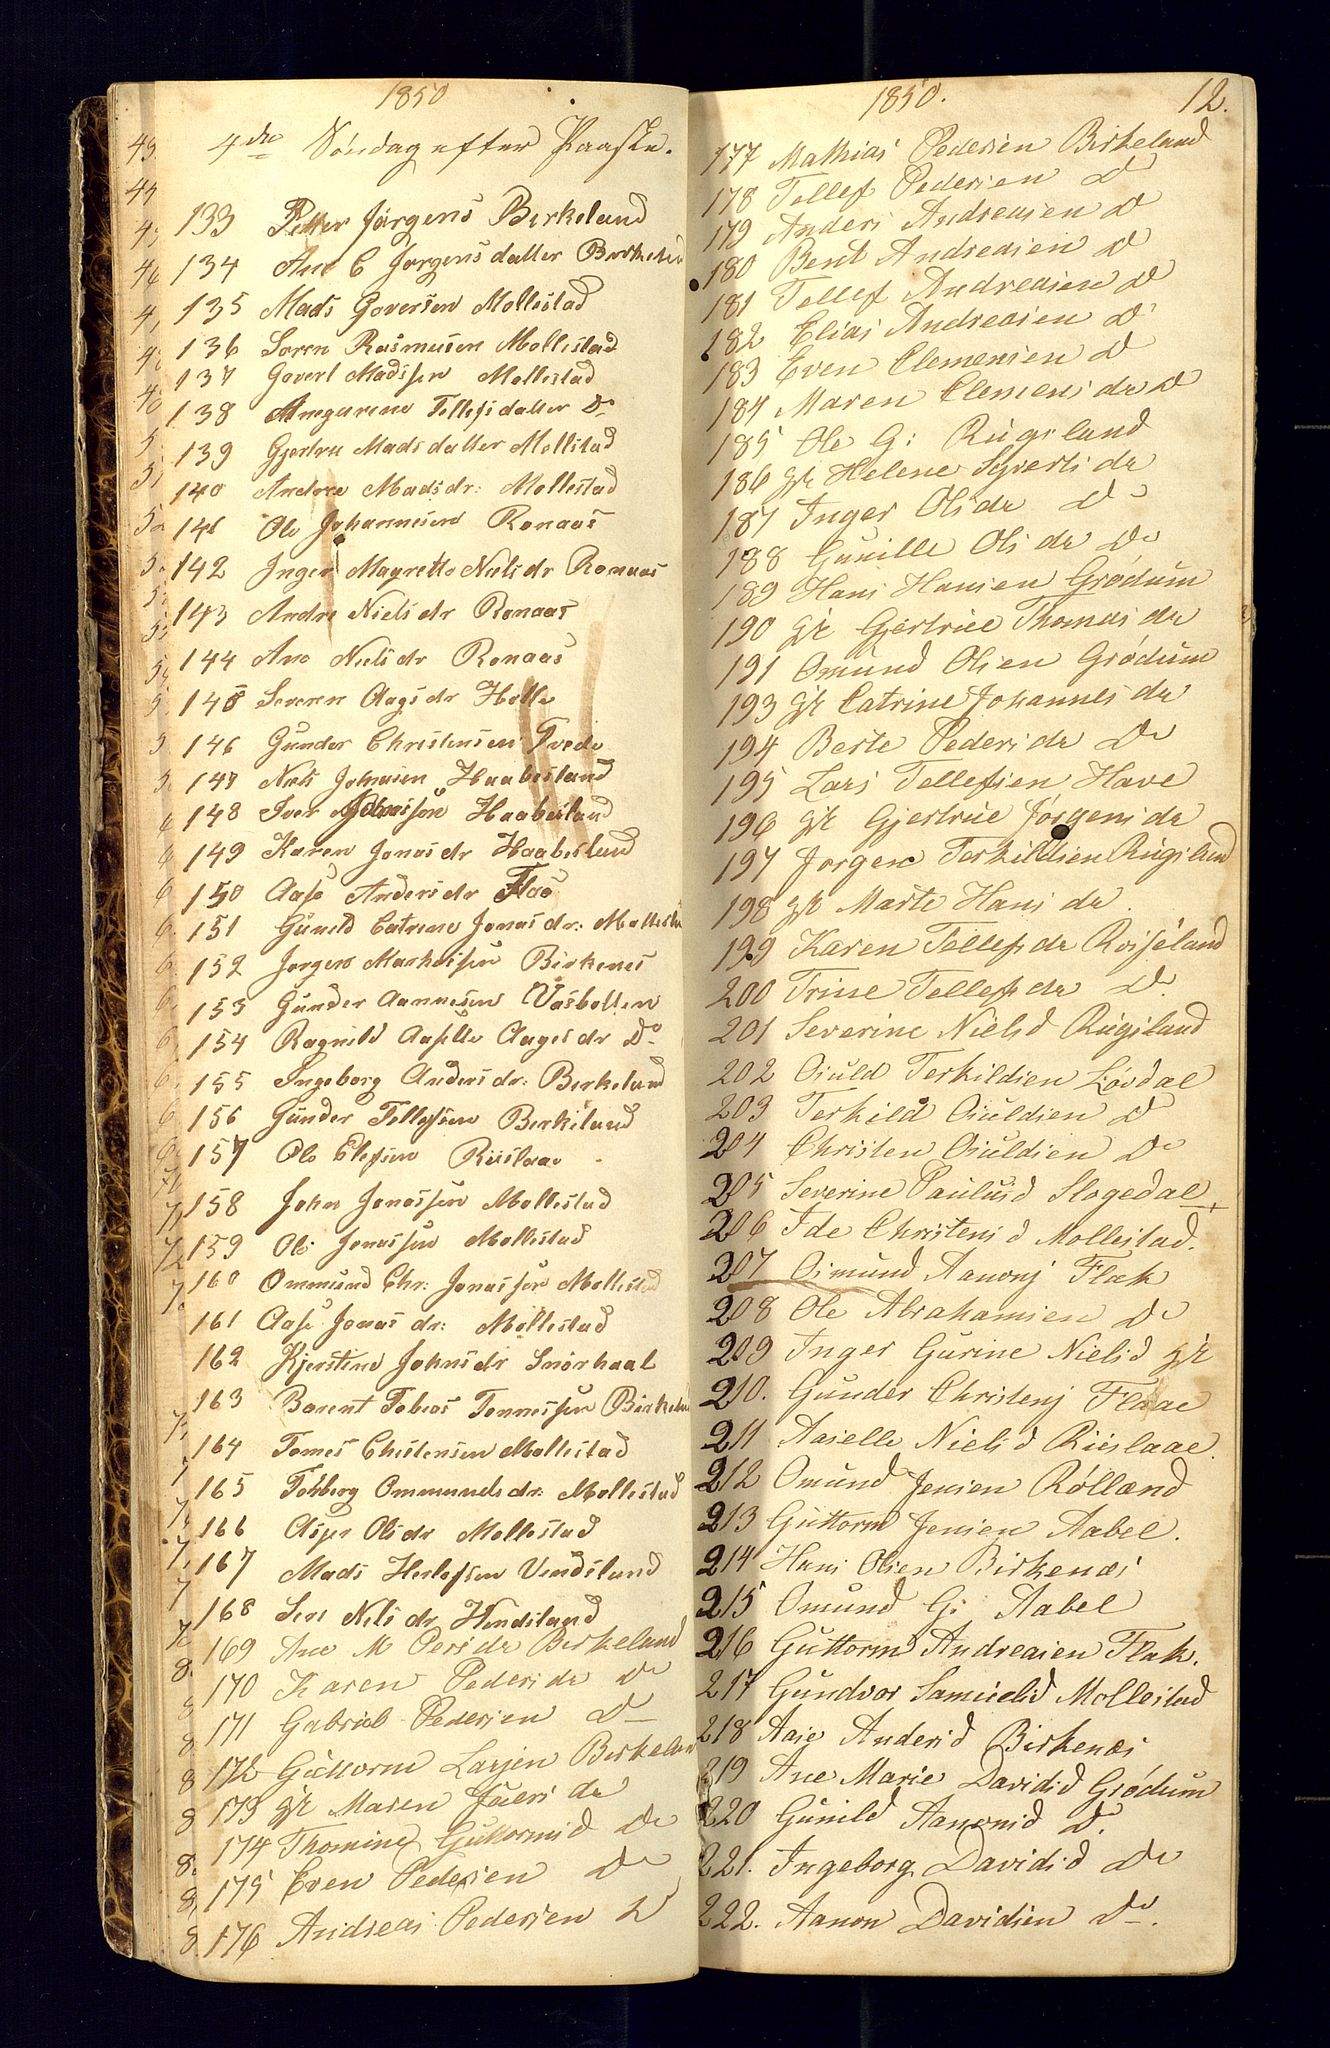 1850
4de Søndag efter Paaske.
133 Peder Jørgens Birkeland
134 Ane C Jørgensdatter Birkeland
135 Mads Goversen Mollestad
136 Soren Rasmusen Mollestad
137 Govert Madssen Mollestad
138 Anegurine Tellefsdatter Do
139 Gjertru Madsdatter Mollestad
140 Andrea Madsdr: Mollestad
141 Ole Johannesen Ronaas
142 Inger Magrette Nielsdr Ronaas
143 Andre Nielsdr Ronaas
144 Ane Nielsdr Ronaas
145 Severen Aagsdr Holle
146 Gunder Christensen Tvede
147 Niels Johnsen Haabesland
148 Iver Haabesland
149 Karen Jonasdr Haabesland
150 Aase Andersdr Flaa
151 Gunild Catrine Jonasdr: Mollestad
152 Jørgen Markussen Birkenes
153 Gunder Aannesen Vasbotten
154 Ragnild Aaselle Aagesdr Do
155 Ingeborg Andersdr: Birkeland
156 Gunder Tellefsen Birkeland
157 Ole Elefsen Riislaae
158 John Jonassen Mollestad
159 Ole Jonassen Mollestad
160 Ommund Chr: Jonassen Mollestad
161 Aase Jonasdr: Mollestad
162 Kjerstine Johnsdr Snørhaal
163 Barent Tobias Tønnessen Birkeland
164 Tomes Chistensen Mollestad
165 Tobberg Ommundsdr: Mollestad
166 Asse Olsdr Mollestad
167 Mads Herlefsen Vendsland
168 Sere Nelsdr Hendsland
169 Ane M Persdr Birkeland
170 Karen Pedersdr Do
171 Gabriel Pedersen Do
172 Guttorm Larsen Birkeland
173 gk Maren Jversdr
174 Thomine Guttormsd Do
175 Even Pedersen Do
176 Andreas Pedersen Do
1850. 12.
177 Mathias Pedersen Birkeland
178 Tellef Pedersen Do
179 Anders Andreasen Do
180 Bent Andreasen Do
181 Tellef Andreasen Do
182 Elias Andreasen Do
183 Even Clemensen Do
184 Maren Clemensdr Do
185 Ole G: Rugsland
186 gk Helene Syvertsdr
187 Inger Olsdr Do
188 Gunille Olsdr Do
189 Hans Hansen Grødum
190 gk Gjertrue Thomasdr
191 Omund Olsen Grødum
193 gk Catrine Johannesdr
194 Berte Pedersdr Do
195 Lars Tellefsen Have
196 gk Gjertrue Jørgensdr
197 Jorgen Terkildsen Rugsland
198 gk Marte Hansdr.
199 Karen Tellefsdr Roiseland
200 Trine Tellefsdr Do
201 Severine Nielsd Rugsland
202 Osuld Terkildsen Løvdal
203 Terkild Osuldsen Do
204 Christen Osuldsen Do
205 Severine Paulusd Slogedal
206 Ide Christensd Mollestad.
207 Osmund Aanonsj Flak
208 Ole Abrahamsen Do
209 Inger Gurine Nielsd gk
210. Gunder Christensj Flaae
211 Aaselle Nielsd Riislaae
212 Omund Jensen Rølland
213 Guttorm Jensen Aabel.
214 Hans Olsen Birkenæs
215 Omund G: Aabel
216 Guttorm Andreasen Flak.
217 Gundvor Samuelsd Mollestad
218 Aase Andersd Birkenæs
219 Ane Marie Davidsd Grødum
220 Gunild Aanonsd Do.
221. Ingeborg Davidsd Do
222. Aanon Davidsen Do.